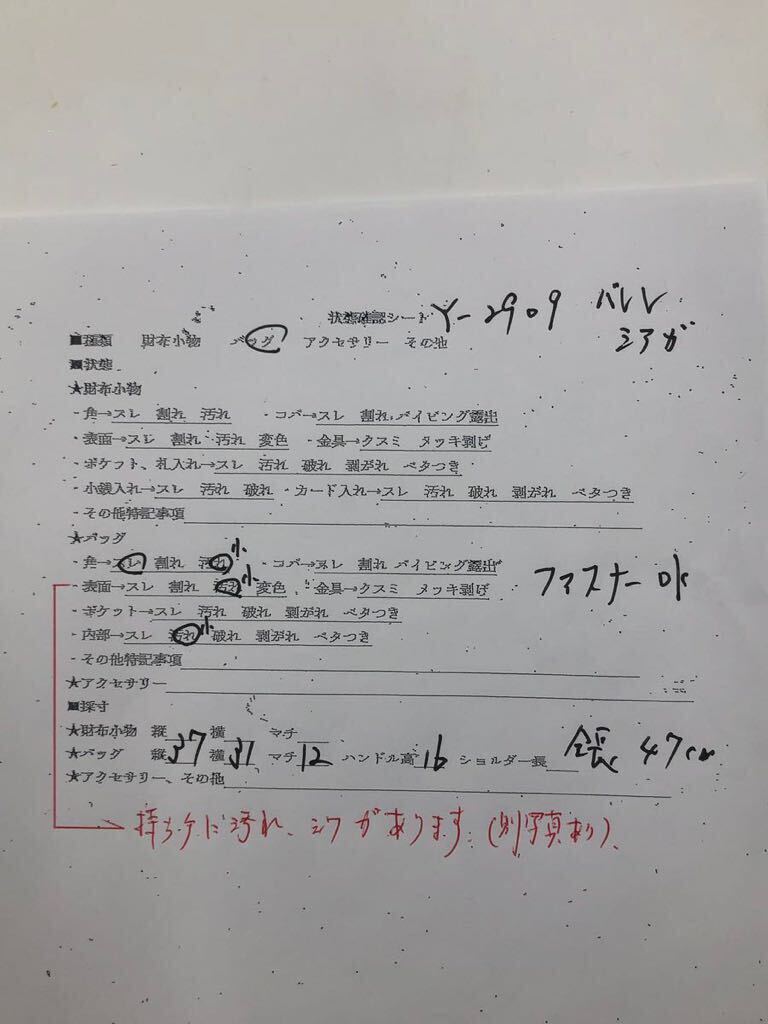 状態確認シート Y-2909 バレレ
シアガ
■種類 財布小物 バッグ アクセサリー その他
■状態
★財布小物
・角→スレ 割れ 汚れ ・コバ→スレ 割れ パイピング露出
・表面→スレ 割れ 汚れ 変色 ・金具→クスミ メッキ剥げ
・ポケット、札入れ→スレ 汚れ 破れ 剥がれ ベタつき
・小銭入れ→スレ 汚れ 破れ ・カード入れ→スレ 汚れ 破れ 剥がれ ベタつき
・その他特記事項
★バッグ
・角→スレ 割れ 汚れ小 ・コバ→スレ 割れ パイピング露出
・表面→スレ 割れ 汚れ小 変色 ・金具→クスミ メッキ剥げ ファスナーOK
・ポケット→スレ 汚れ 破れ 剥がれ ベタつき
・内部→スレ 汚れ小 破れ 剥がれ ベタつき
・その他特記事項
★アクセサリー
■採寸
★財布小物 縦 横 マチ
★バッグ 縦37 横31 マチ12 ハンドル高16 ショルダー長 全長 47cm
★アクセサリー、その他
持ち手に汚れ、シワがあります。(別写真あり)